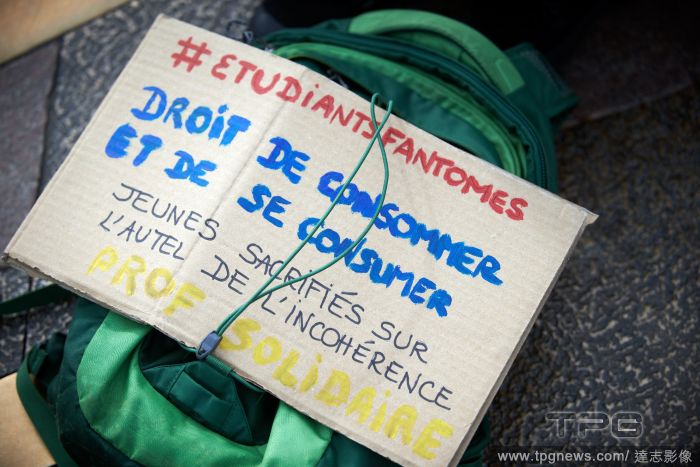 #ETUDiANTSFANTOMES
DROiT DE CONSOMMER
ET DE SE CONSUMER
JEUNES SACRIFIÉS SUR
L'AUTEL DE L'INCOHÉRENCE
PROF SOLIDAIRE
TPG
www.tpgnews.com/ 達志影像